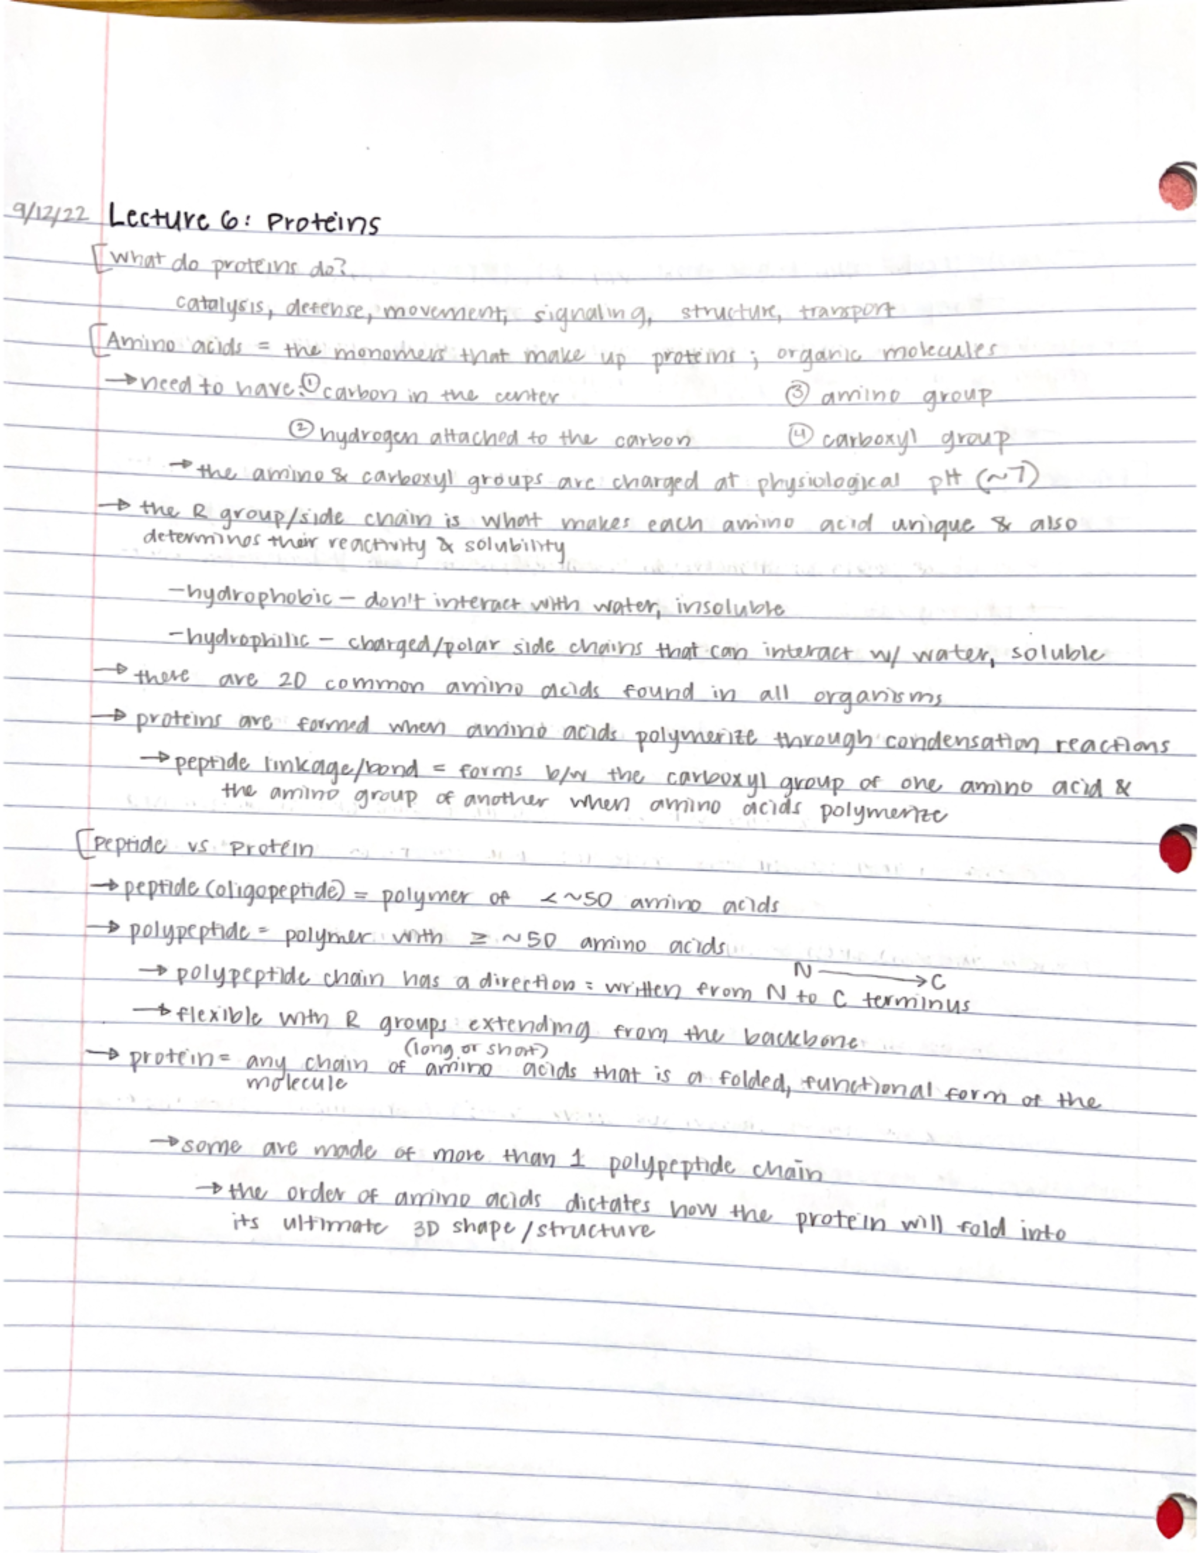 9/12/22 Lecture 6: Proteins
[What do proteins do?
catalysis, defense, movement, signaling, structure, transport
[Amino acids = the monomers that make up proteins; organic molecules
→ need to have: ① carbon in the center ③ amino group
② hydrogen attached to the carbon ④ carboxyl group
→ the amino & carboxyl groups are charged at physiological pH (~7)
→ the R group/side chain is what makes each amino acid unique & also
determines their reactivity & solubility
- hydrophobic - don't interact with water, insoluble
- hydrophilic - charged/polar side chains that can interact w/ water, soluble
→ there are 20 common amino acids found in all organisms
→ proteins are formed when amino acids polymerize through condensation reactions
→ peptide linkage/bond = forms b/w the carboxyl group of one amino acid &
the amino group of another when amino acids polymerize
[Peptide vs Protein
→ peptide (oligopeptide) = polymer of < ~50 amino acids
→ polypeptide = polymer with ≥ ~50 amino acids
N → C
→ polypeptide chain has a direction = written from N to C terminus
→ flexible with R groups extending from the backbone
(long or short)
→ protein = any chain of amino acids that is a folded, functional form of the
molecule
→ some are made of more than 1 polypeptide chain
→ the order of amino acids dictates how the protein will fold into
its ultimate 3D shape/structure